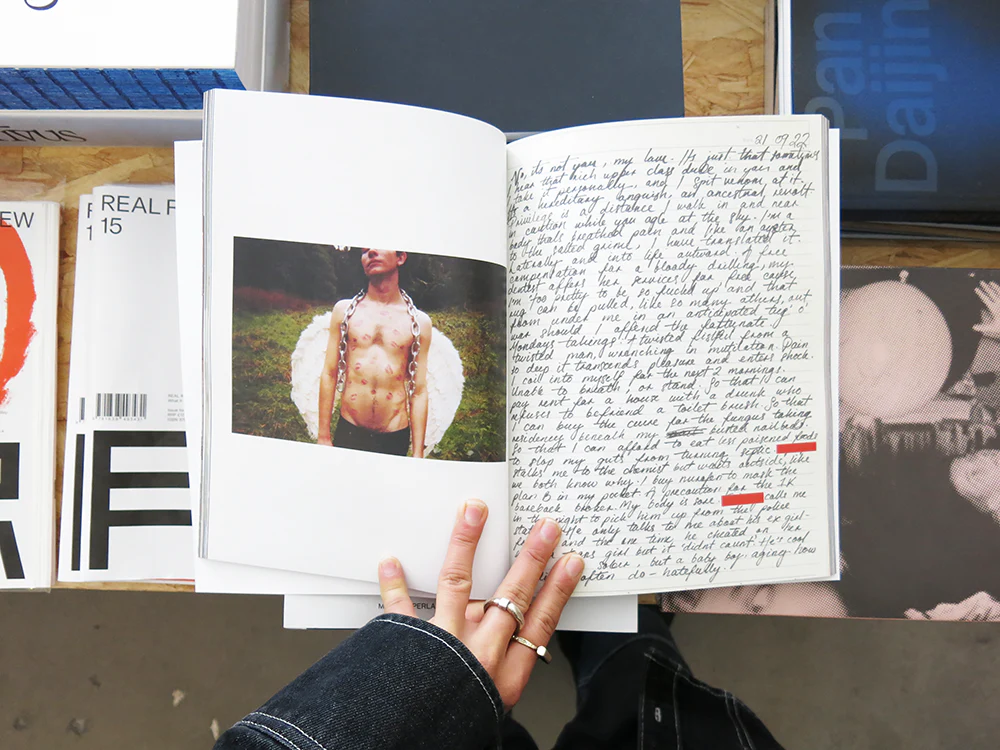 Pan
Daijin
EW
REAL R
15
F
1
21 09 22
No, its not you, my love. It's just that sometimes
I hear that rich upper class dude in you and
take it personally, and I spit venom at it.
It's a hereditary anguish, an ancestral revolt
Privilege is at distance I walk in and near
in caution while you ogle at the sky. I'm a
body that's breathed pain and like van
to the salted grime, I have translated it.
laterally and into life outward of free
compensation for a bloody drilling, my
dentist offers her services for kick cause
I'm too pretty to be so fucked up and that
rug can be pulled, like so many others, out
from under me in an anticipated tug o'
war should I offend the
Mondays takings. A twisted fistful from a
twisted man, wrenching in mutilation. Pain
so deep it transcends pleasure and enters shock.
I coil into myself for the next 2 mornings.
Unable to breath, or stand. So that I can
pay rent for a house with a drunk who
refuses to befriend a toilet brush. So that
I can buy the cure for the fungus taking
residency beneath my busted nailbed.
So that I can afford to eat less poisoned foods
to stop my guts from turning septic
stalks me to the chemist but waits outside, like
we both know why. I buy nurofen to mask the
plan B in my pocket of precaution for the 1K
bareback broker. My body is sore. calls me
in the night to pick him up from the police
station. He only talks to me about his ex girl-
and the one time he cheated on her
girl but it 'didnt count'. He's cool
sober, but a baby boy. aging. how
often do - hatefully.
PERLA